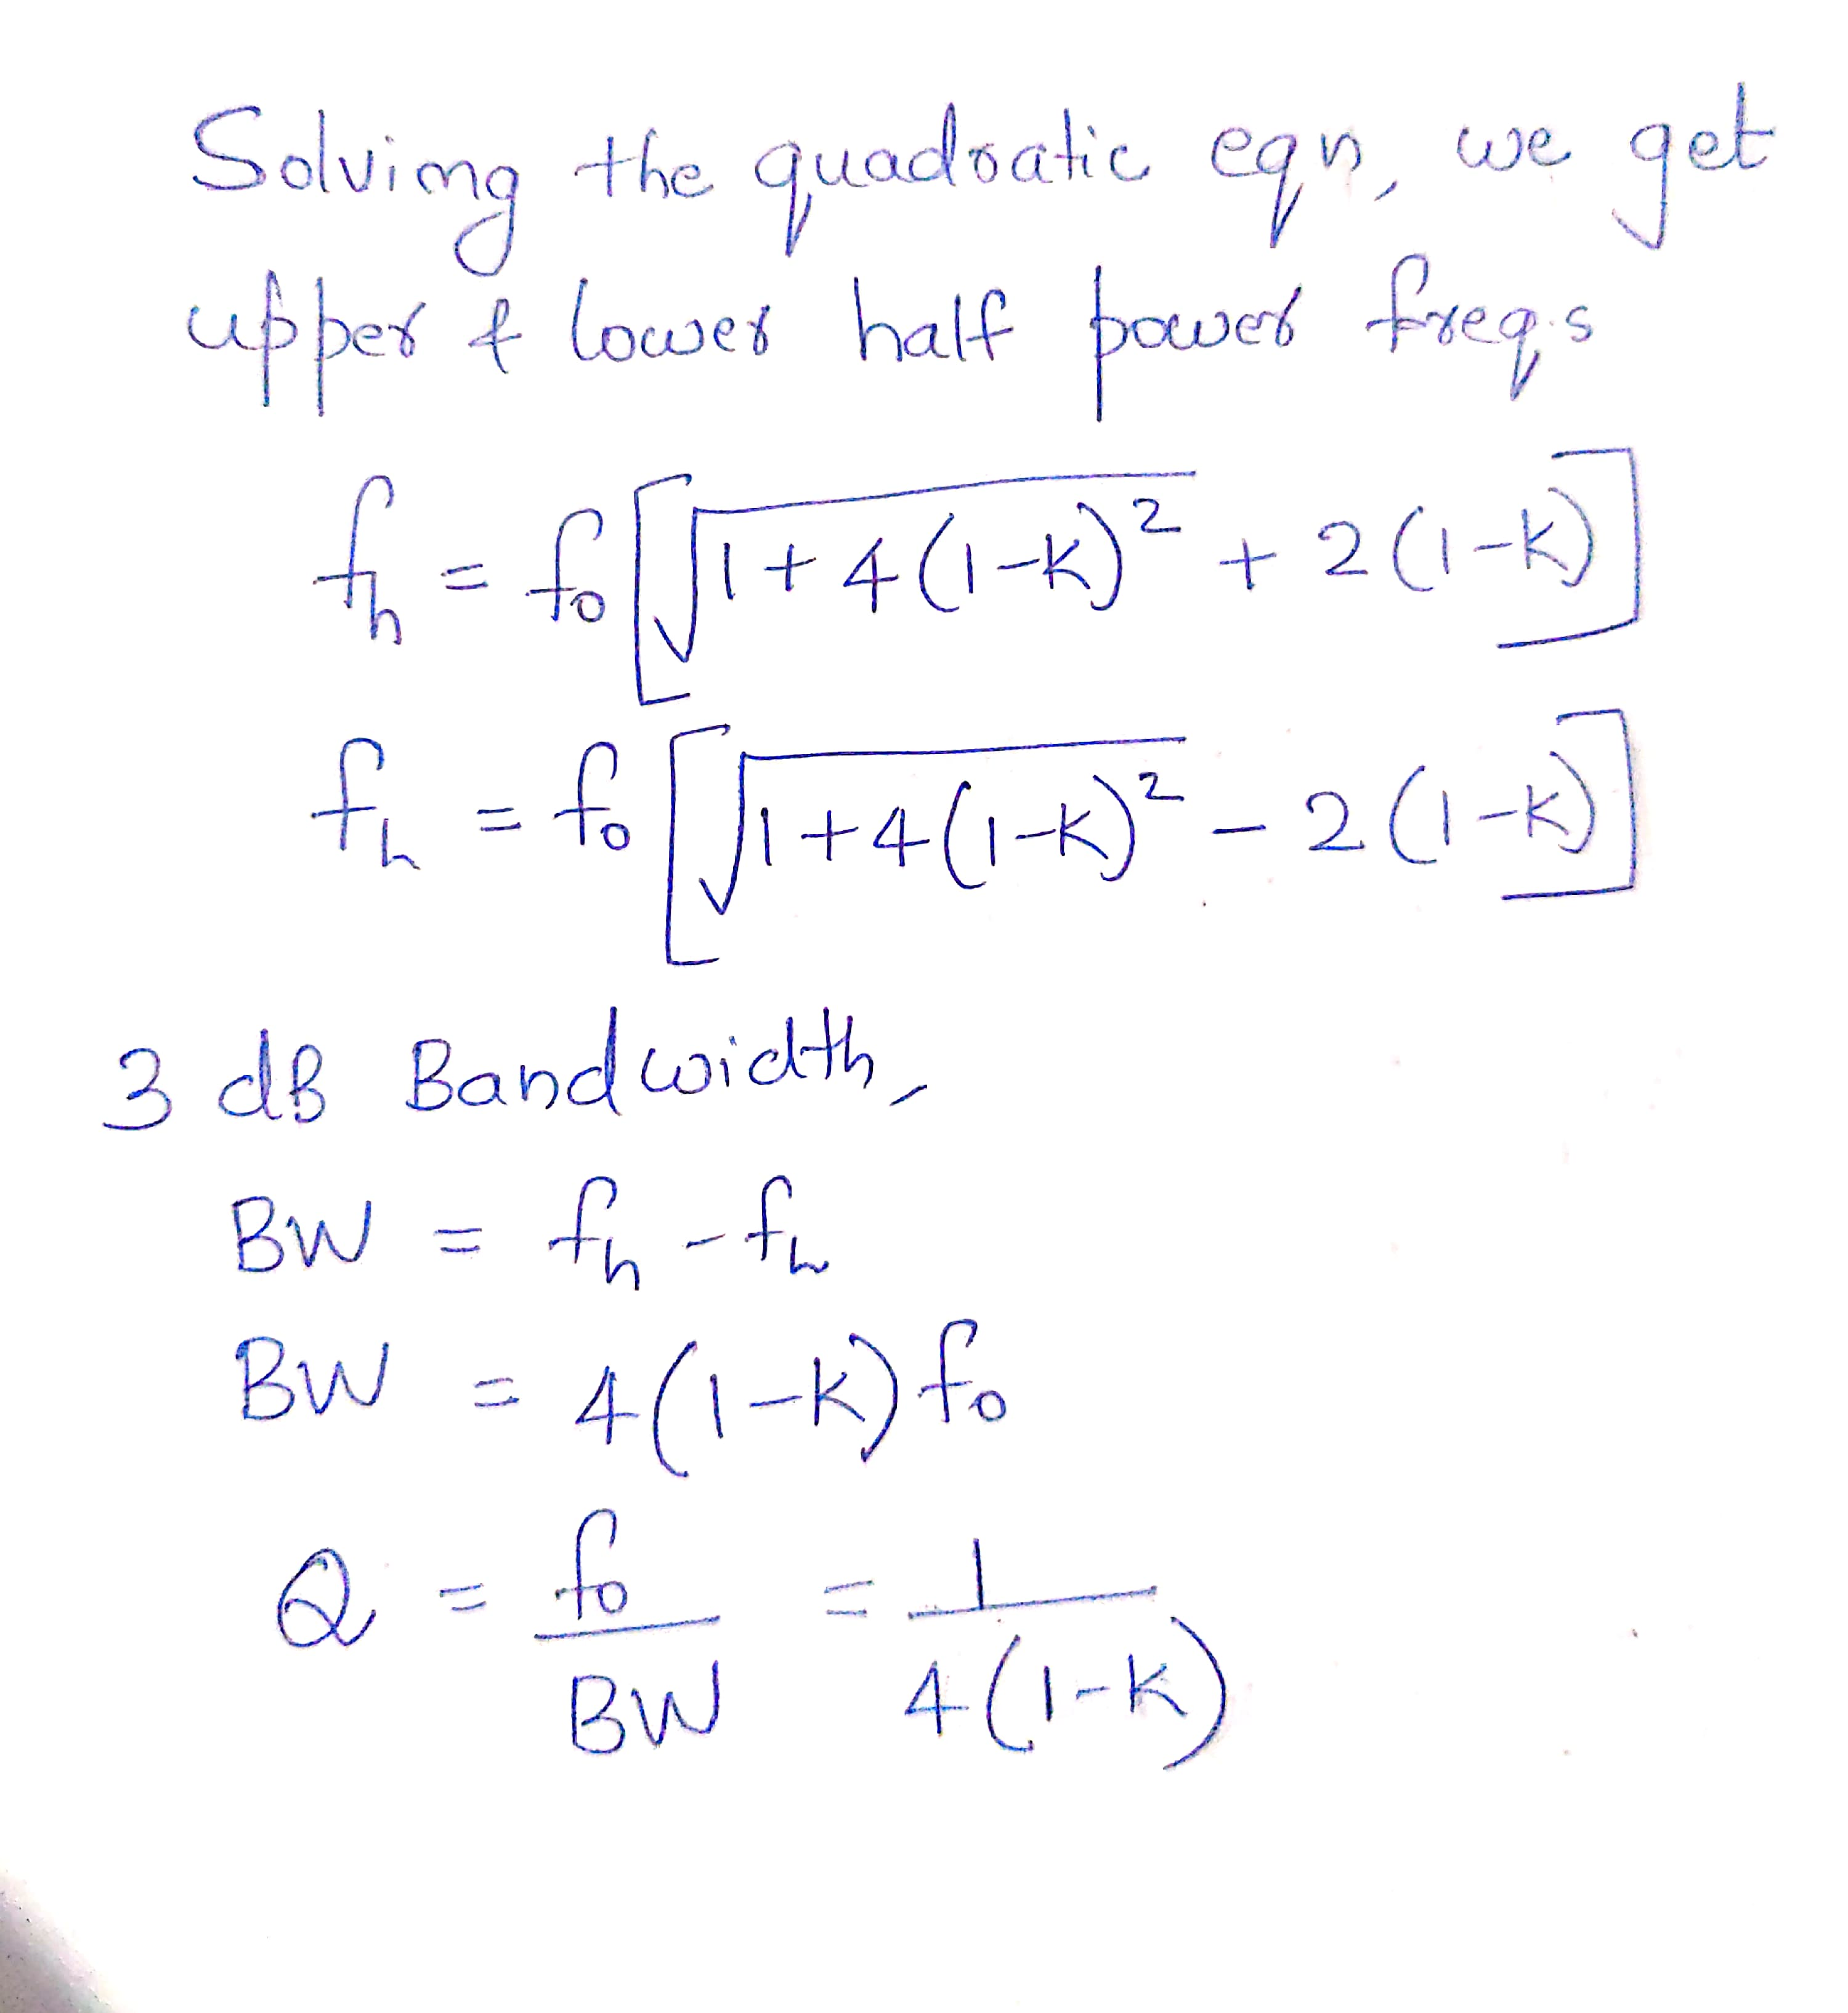 Solving the quadratic eqn, we get
upper & lower half power freq.s
fₕ = f₀[√(1+4(1-K)²) + 2(1-K)]
fₕ = f₀[√(1+4(1-K)²) - 2(1-K)]
3 dB Bandwidth,
BW = fₕ - fₕ
BW = 4(1-K)f₀
Q = f₀/BW = 1/4(1-K)